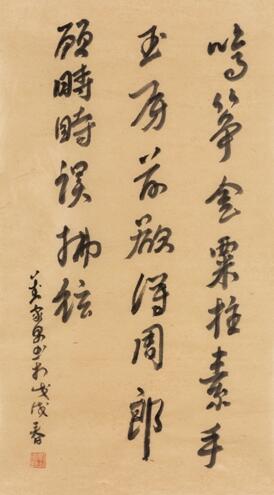 鳴箏金粟柱素手
玉房前欲得周郎
顧時時誤拂絃
書於戊戌春